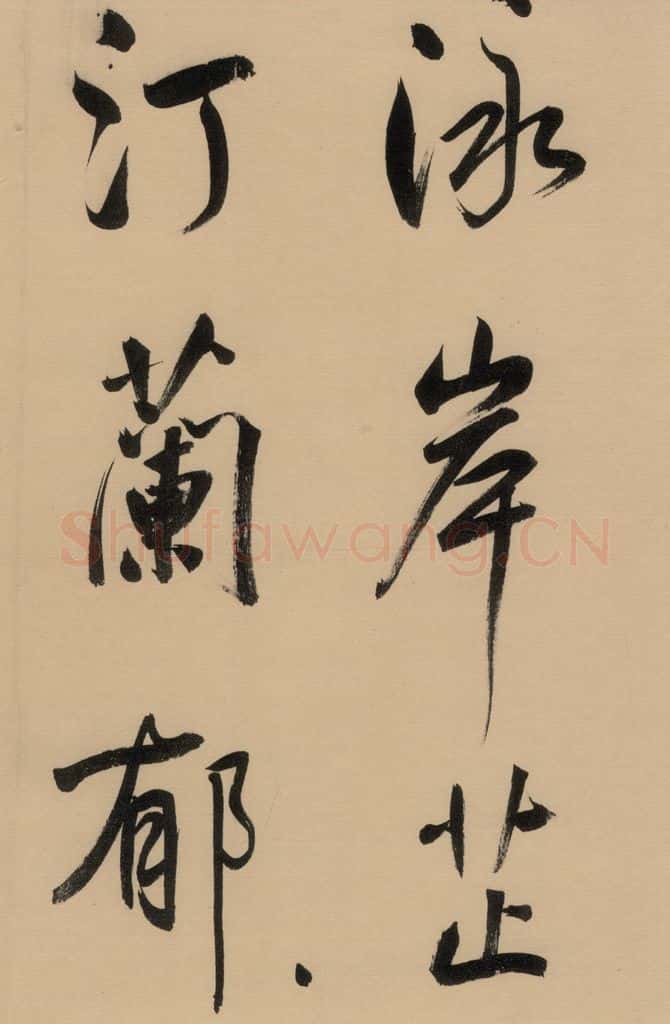 泳岸芷
汀蘭郁
Shufawang.CN